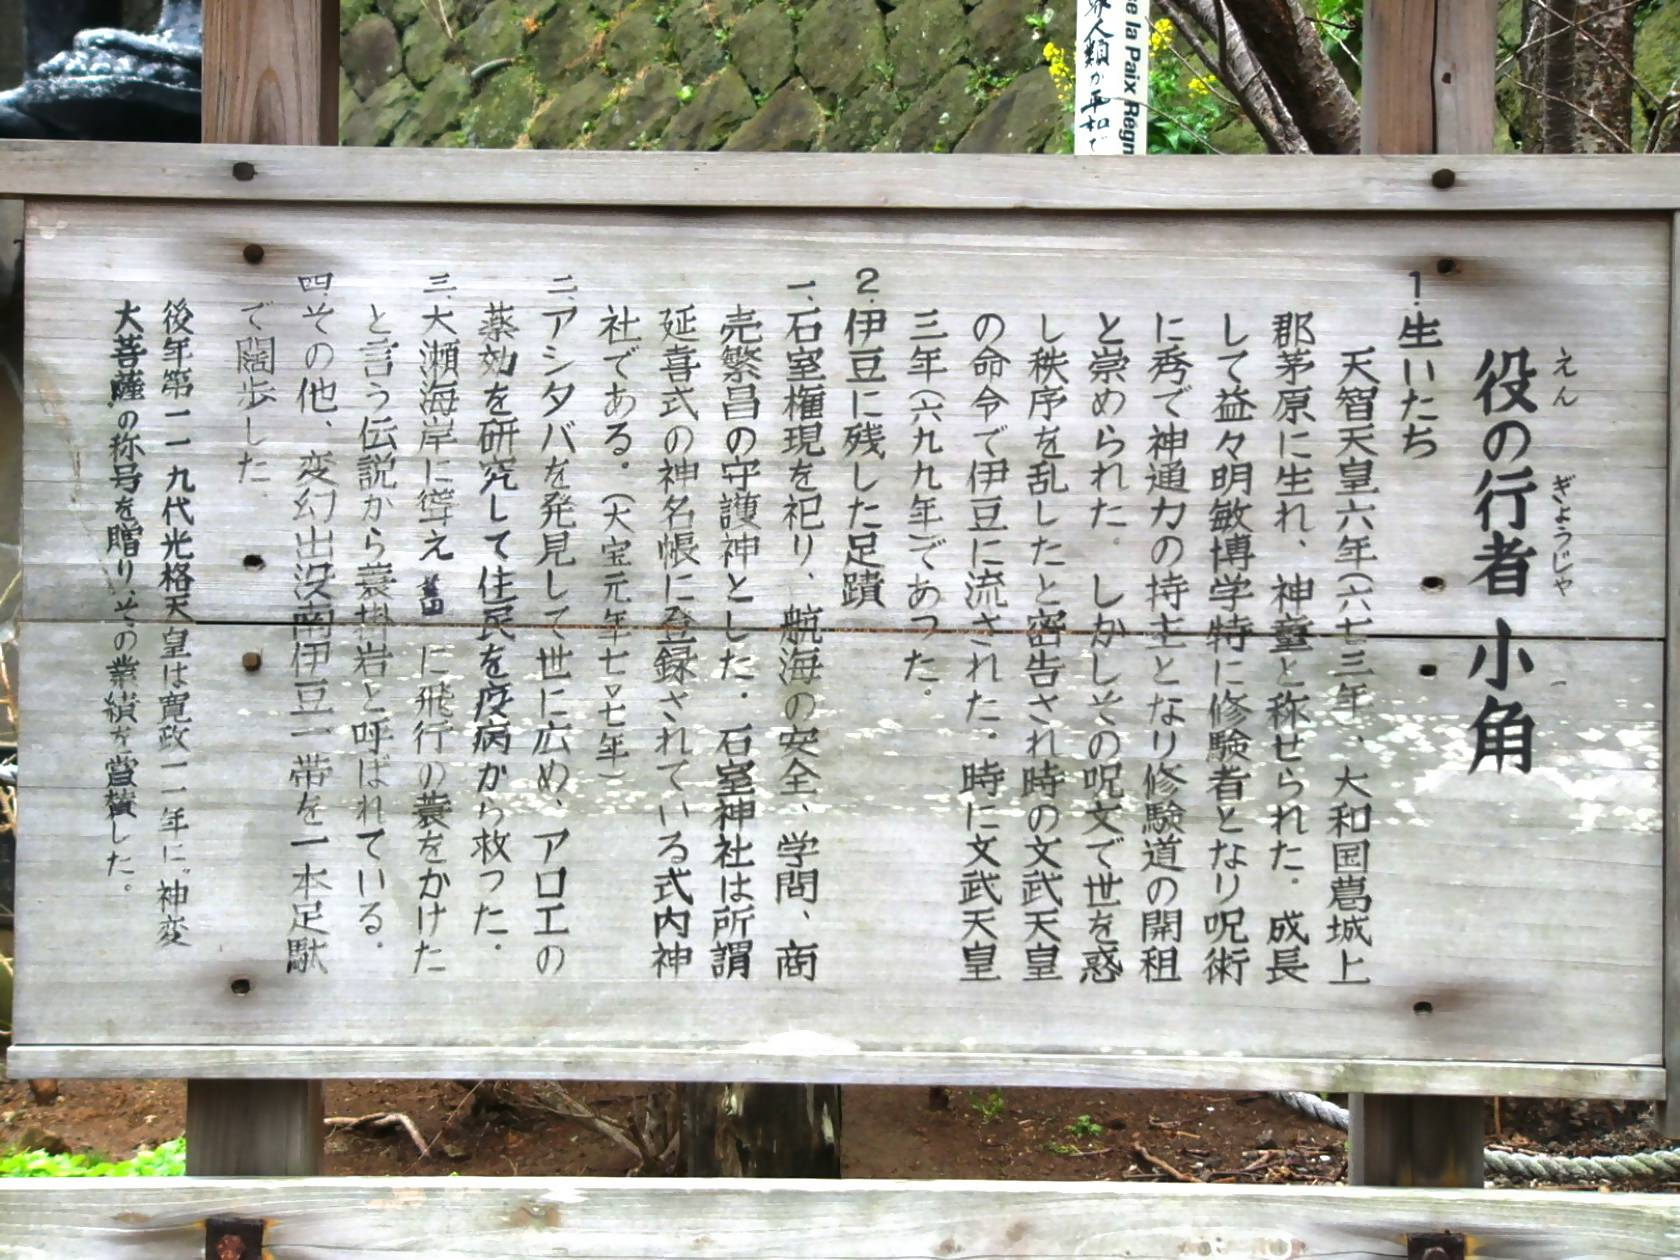 役の行者 小角
えん ぎょうじゃ
1.生いたち
天智天皇六年(六七三年、大和国葛城上
郡茅原に生れ、神童と称せられた。成長
して益々明敏博学特に修験者となり呪術
に秀で神通力の持主となり修験道の開祖
と崇められた。しかしその呪文で世を惑
し秩序を乱したと密告され時の文武天皇
の命令で伊豆に流された。時に文武天皇
三年(六九九年)であった。
2.伊豆に残した足蹟
一、石室権現を祀り、航海の安全、学問、商
売繁昌の守護神とした。石室神社は所謂
延喜式の神名帳に登録されている式内神
社である。(大宝元年七〇七年)
二、アシタバを発見して世に広め、アロエの
薬効を研究して住民を疫病から救った。
三、大瀬海岸に聳え
に飛行の蓑をかけた
と言う伝説から蓑掛岩と呼ばれている。
四、その他、変幻出没南伊豆一帯を一本足駄
で闊歩した
後年第一一九代光格天皇は寛政一一年に"神変
大菩薩の称号を贈り、その業績を賞賛した。
界人類が平和で
e la Paix Règn